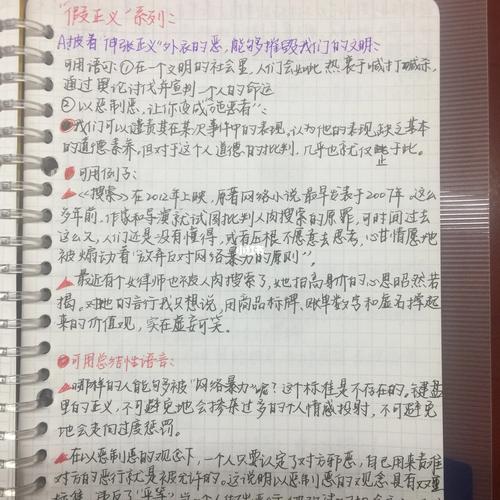 “假正义”系列:
A披着“伸张正义”外衣的恶,能够摧毁我们的文明:
可用语句:①在一个文明的社会里,人们会如此热衷于喊打喊杀,
通过舆论讨伐并宣判一个人的命运
②以恶制恶,让你变成“施恶者”:
我们可以谴责其在某次事件中的表现,认为他的表现缺乏基本
的道德素养,但对于这个人道德的批判,几乎也就仅止于此。
可用例子:
《搜索》在2012年上映,原著网络小说最早发表于2007年。这么
多年前,作家和导演就试图批判人肉搜索的原罪,可时间过去
这么久,人们还是没有懂得,或者压根不愿意去思考,心甘情愿地
被煽动着“放弃反对网络暴力的原则”。
最近有个女律师也被人肉搜索了,她抬高身价的心思昭然若
揭。对她的言行我只想说,用商品标牌、账单数字和虚名撑起
来的价值观,实在虚妄可笑。
可用总结性语言:
哪样的人能够被“网络暴力”呢?这个标准是不存在的。键盘
里的正义,不可避免地会掺杂过多的个人情感投射,不可避免
地会走向过度惩罚。
在以恶制恶的观念下,一个人只要认定了对方邪恶,自己用来责难
对方的恶行就是被允许的。这说明以恶制恶的观念具有双重
标准,违反了“平等”